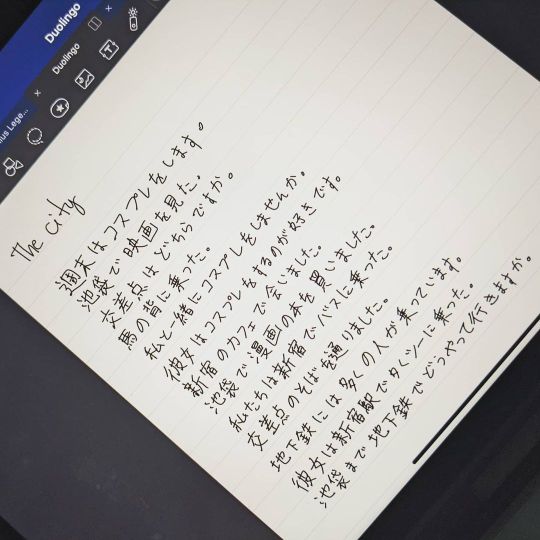 Duolingo
Duolingo
ius Lege...
The city
週末はコスプレをします。
池袋で映画を見た。
交差点はどちらですか。
馬の背に乗った。
私と一緒にコスプレをしませんか。
彼女はコスプレをするのが好きです。
新宿のカフェで会いました。
池袋で漫画の本を買いました。
私たちは新宿でバスに乗った。
交差点のそばを通りました。
地下鉄には多くの人が乗っています。
彼女は新宿駅でタクシーに乗った。
池袋まで地下鉄でどうやって行きますか。